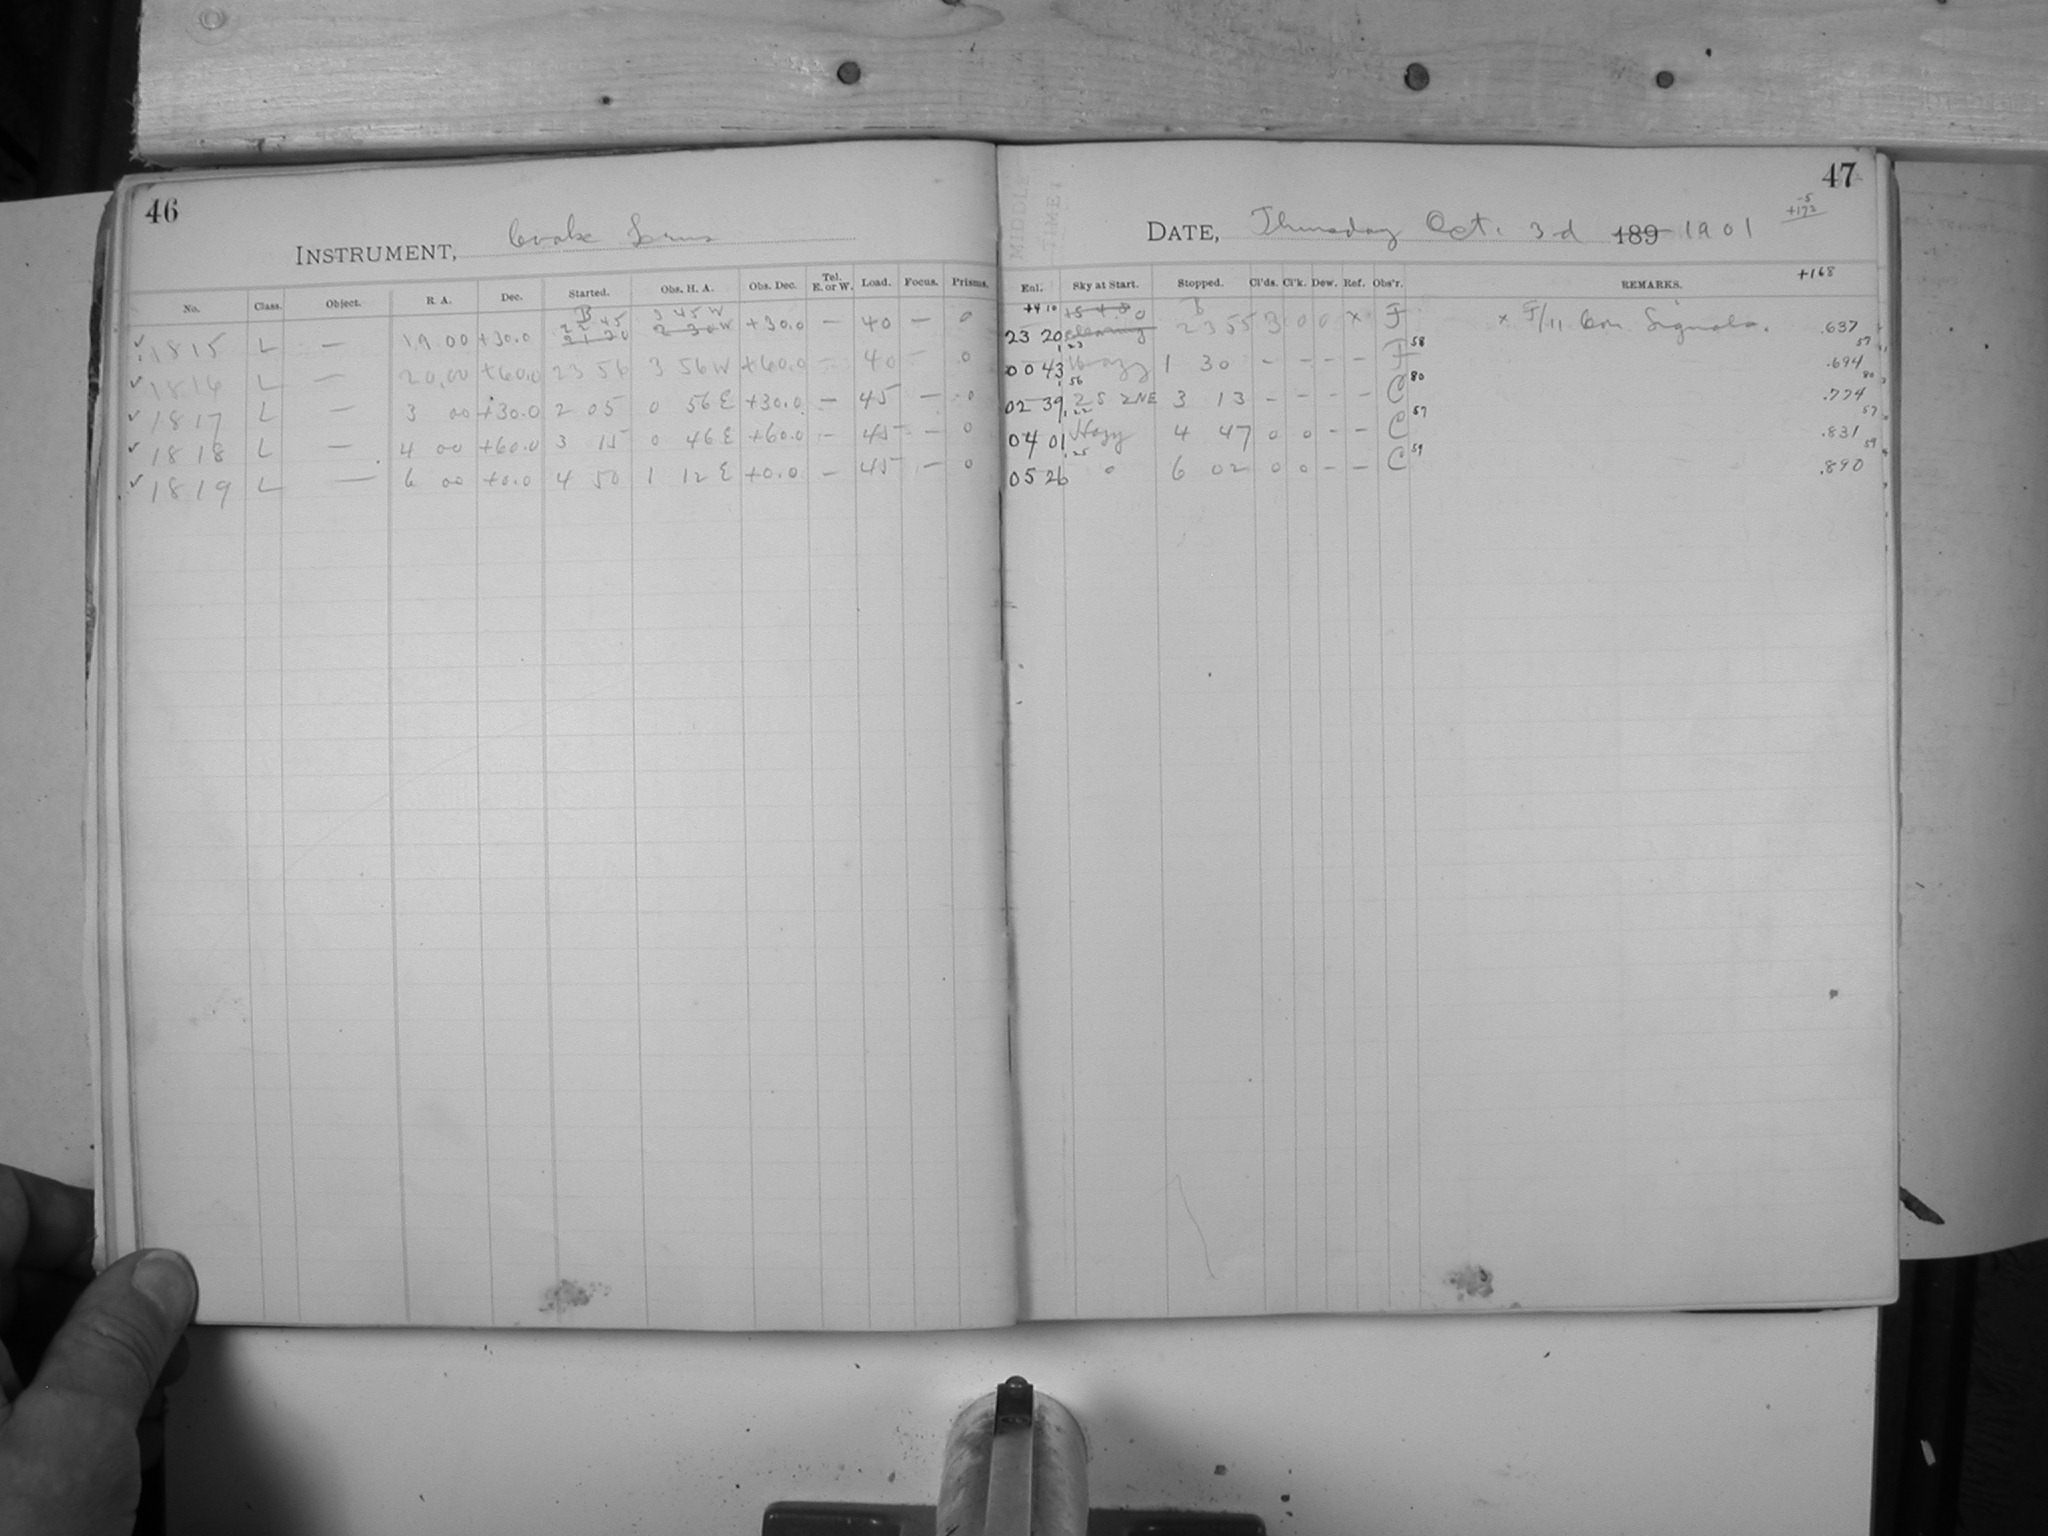 46
INSTRUMENT, Cooke Lens
No. Class. Object. R. A. Dec. Started. Obs. H. A. Obs. Dec. Tel. E. or W. Load. Focus. Prisms.
B
22 45 3 45 W
✓ 1815 L — 19 00 +30.0 21 30 2 30 W +30.0 — 40 — 0
✓ 1816 L — 20,00 +60.0 23 56 3 56 W +60.0 — 40 — 0
✓ 1817 L — 3 00 +30.0 2 05 0 56 E +30.0 — 45 — 0
✓ 1818 L — 4 00 +60.0 3 15 0 46 E +60.0 — 45 — 0
✓ 1819 L — 6 00 +0.0 4 50 1 12 E +0.0 — 45 — 0
47
MIDDLE
TIME
-5
+173
DATE, Thursday Oct. 3d 189 1901
+168
Enl. Sky at Start. Stopped. Cl'ds. Cl'k. Dew. Ref. Obs'r. REMARKS.
+410 B
23 20 clearing 23 55 3 0 0 x F x F/11 Com. Signals. .637
1 23 58 57
00 43 Hazy 1 30 - - - - F .694
1 56 80 80
02 39 2S 2NE 3 13 - - - - C .774
1 22 57 57
04 01 Hazy 4 47 0 0 - - C .831
1 25 59 59
05 26 0 6 02 0 0 - - C .890